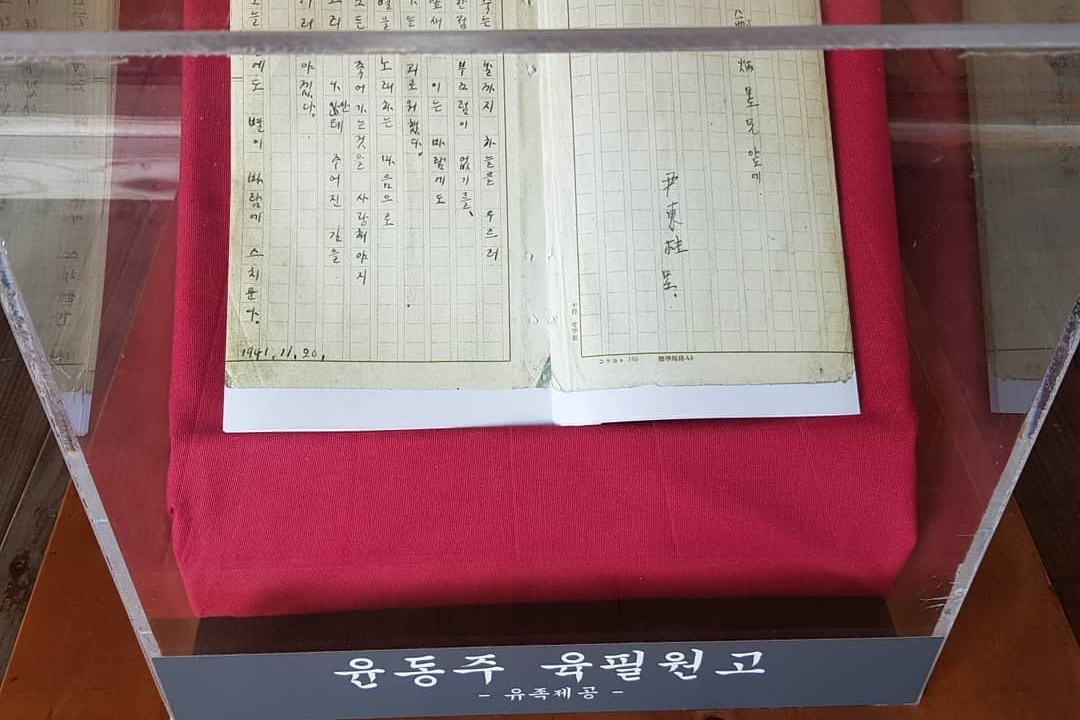 炳昱兄앞에.
尹東柱 呈.
죽는 날까지 하늘을 우르러
한점 부끄럼이 없기를,
잎새 이는 바람에도
는 괴로워했다.
별을 노래하는 마음으로
모든 죽어가는것을 사랑해야지
그리고 나안테 주어진 길을
야겠다.
오늘 에도 별이 바람에 스치운다.
1941. 11. 20.
윤동주 육필원고
- 유족제공 -